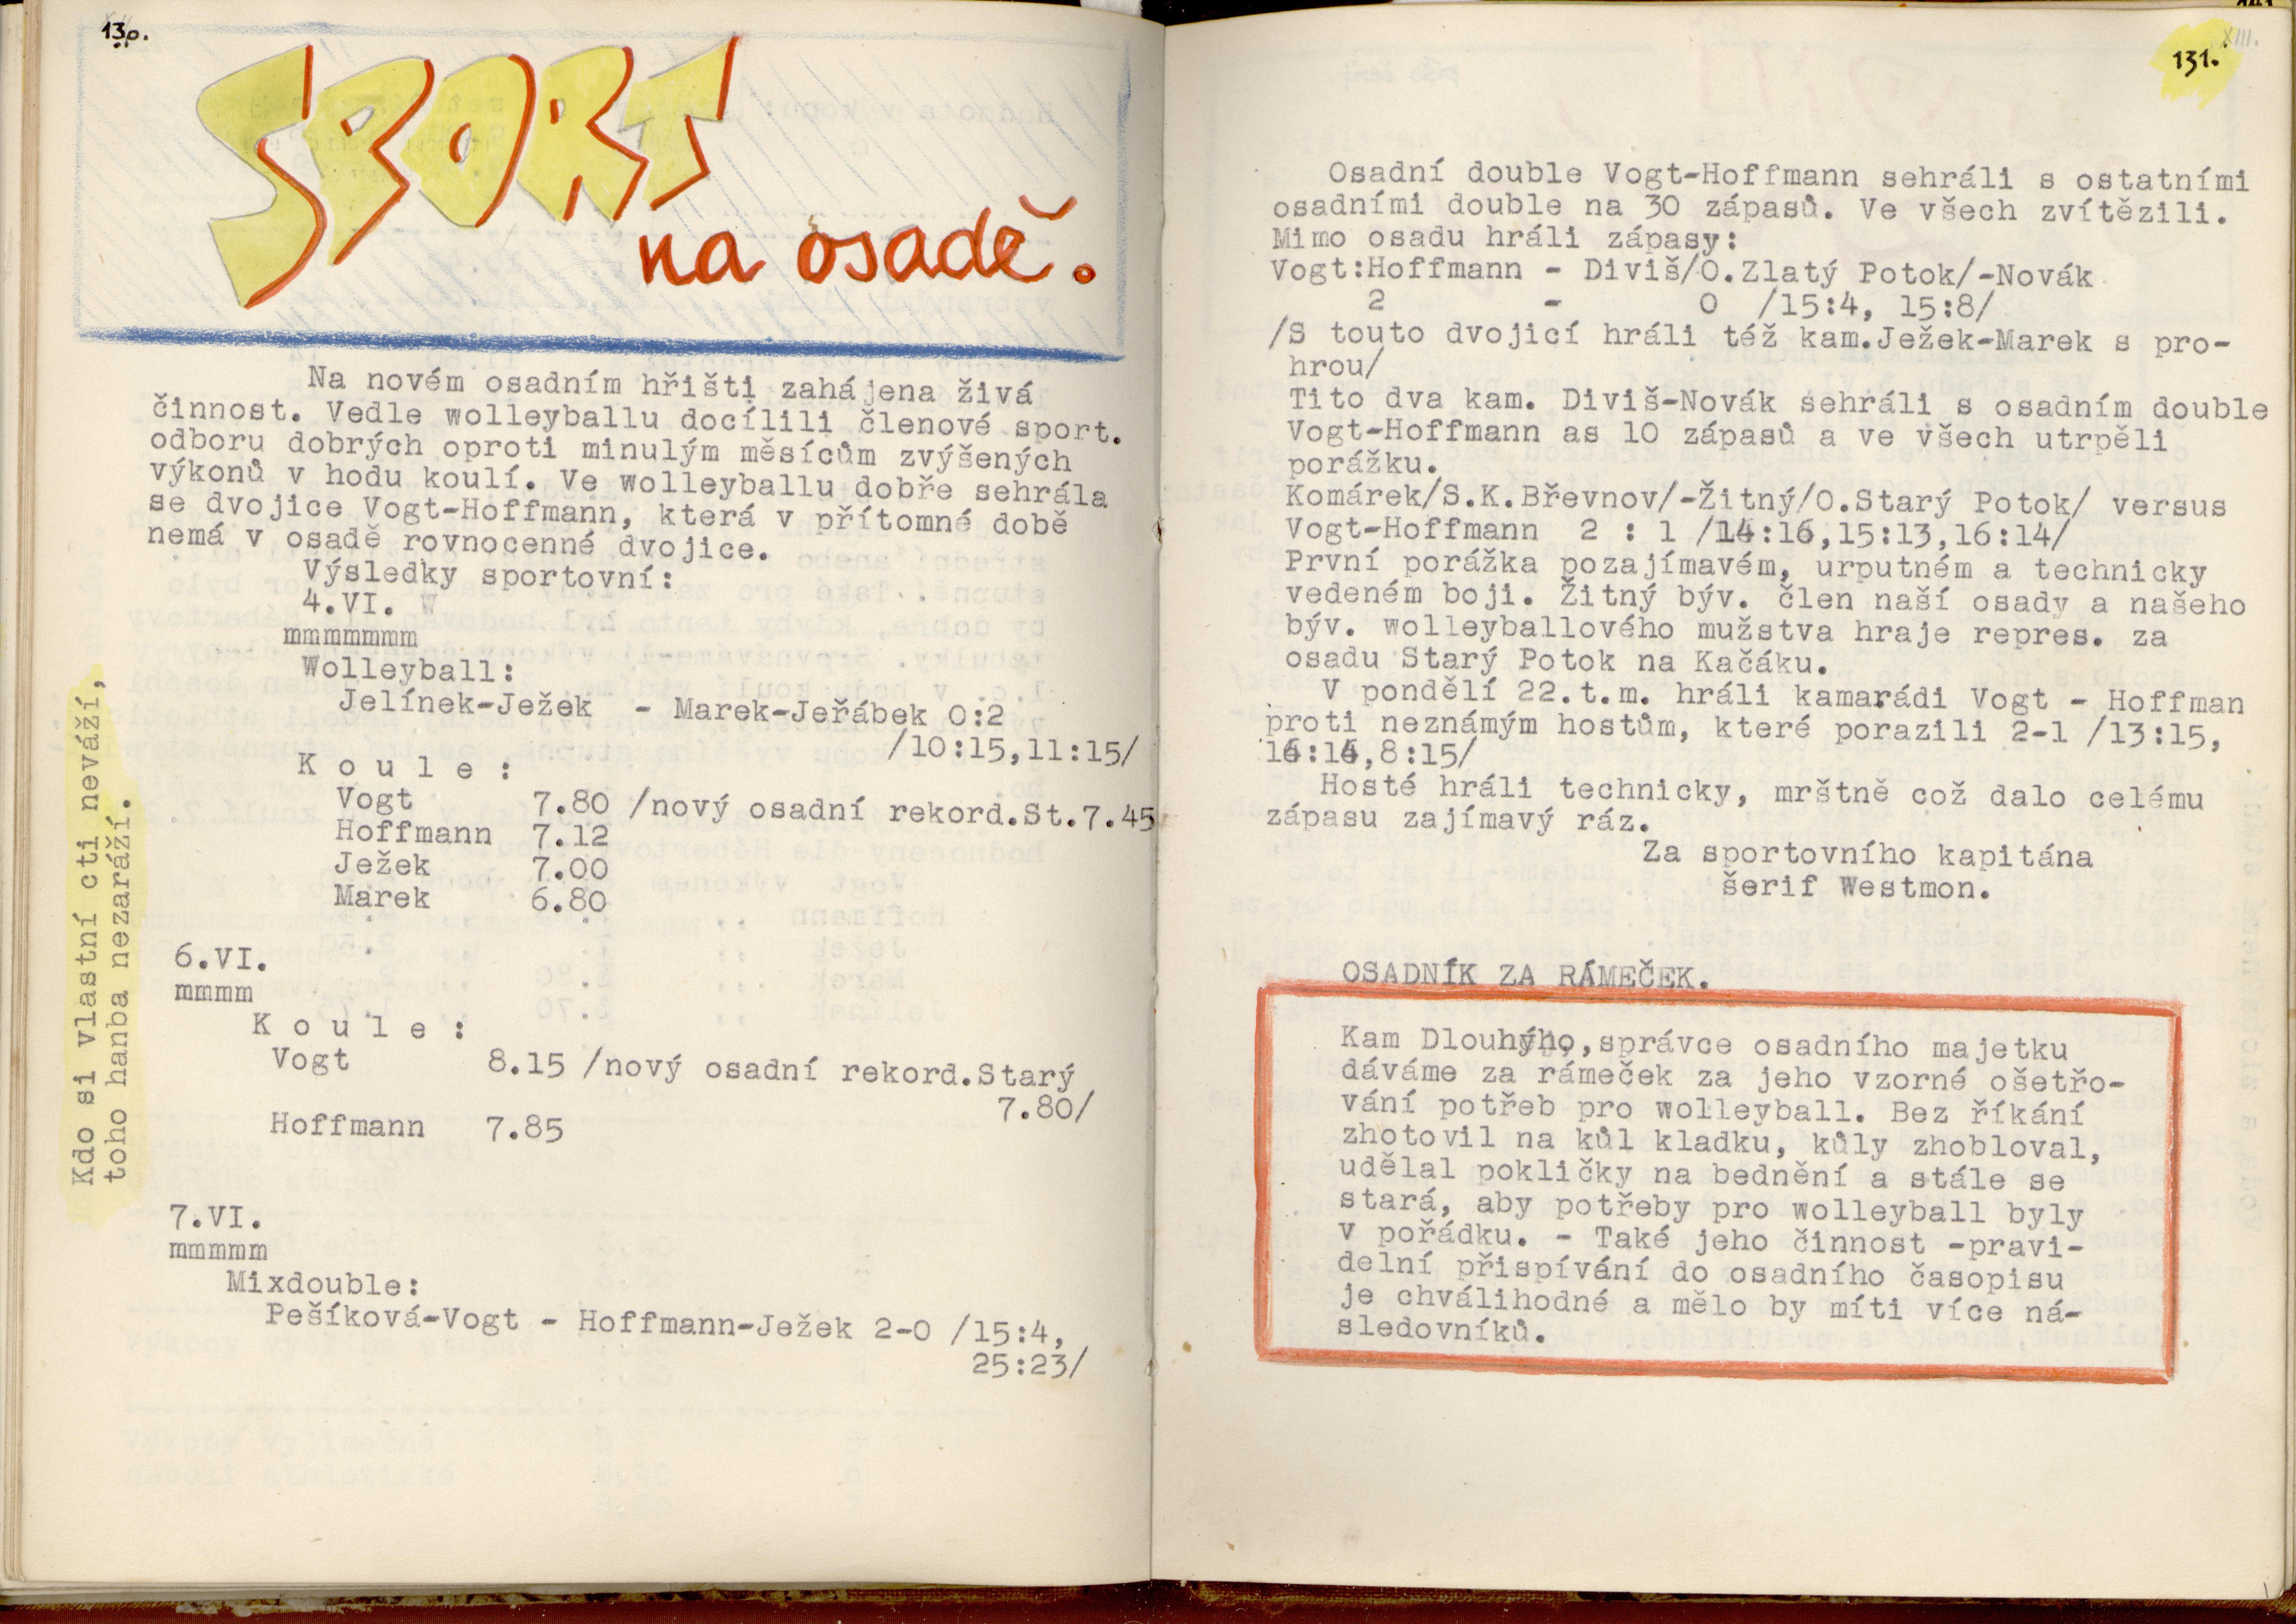 130.
SPORT
na osadě.
Na novém osadním hřišti zahájena živá
činnost. Vedle wolleyballu docílili členové sport.
odboru dobrých oproti minulým měsícům zvýšených
výkonů v hodu koulí. Ve wolleyballu dobře sehrála
se dvojice Vogt-Hoffmann, která v přítomné době
nemá v osadě rovnocenné dvojice.
Výsledky sportovní:
4.VI.
mmmmmmm
Wolleyball:
Jelínek-Ježek - Marek-Jeřábek 0:2
/10:15,11:15/
K o u l e :
Vogt 7.80 /nový osadní rekord.St.7.45
Hoffmann 7.12
Ježek 7.00
Marek 6.80
6.VI.
mmmm
K o u l e :
Vogt 8.15 /nový osadní rekord.Starý
7.80/
Hoffmann 7.85
7.VI.
mmmmm
Mixdouble:
Pešíková-Vogt - Hoffmann-Ježek 2-0 /15:4,
25:23/
Kdo si vlastní cti neváží,
toho hanba nezaráží.
131.
XIII.
Osadní double Vogt-Hoffmann sehráli s ostatními
osadními double na 30 zápasů. Ve všech zvítězili.
Mimo osadu hráli zápasy:
Vogt:Hoffmann - Diviš/O.Zlatý Potok/-Novák
2 - 0 /15:4, 15:8/
/S touto dvojicí hráli též kam.Ježek-Marek s pro-
hrou/
Tito dva kam. Diviš-Novák sehráli s osadním double
Vogt-Hoffmann as 10 zápasů a ve všech utrpěli
porážku.
Komárek/S.K.Břevnov/-Žitný/O.Starý Potok/ versus
Vogt-Hoffmann 2 : 1 /14:16,15:13,16:14/
První porážka pozajímavém, urputném a technicky
vedeném boji. Žitný býv. člen naší osady a našeho
býv. wolleyballového mužstva hraje repres. za
osadu Starý Potok na Kačáku.
V pondělí 22.t.m. hráli kamarádi Vogt - Hoffman
proti neznámým hostům, které porazili 2-1 /13:15,
16:14,8:15/
Hosté hráli technicky, mrštně což dalo celému
zápasu zajímavý ráz.
Za sportovního kapitána
šerif Westmon.
OSADNÍK ZA RÁMEČEK.
Kam Dlouhýho,správce osadního majetku
dáváme za rámeček za jeho vzorné ošetřo-
vání potřeb pro wolleyball. Bez říkání
zhotovil na kůl kladku, kůly zhobloval,
udělal pokličky na bednění a stále se
stará, aby potřeby pro wolleyball byly
v pořádku. - Také jeho činnost -pravi-
delní přispívání do osadního časopisu
je chválihodné a mělo by míti více ná-
sledovníků.